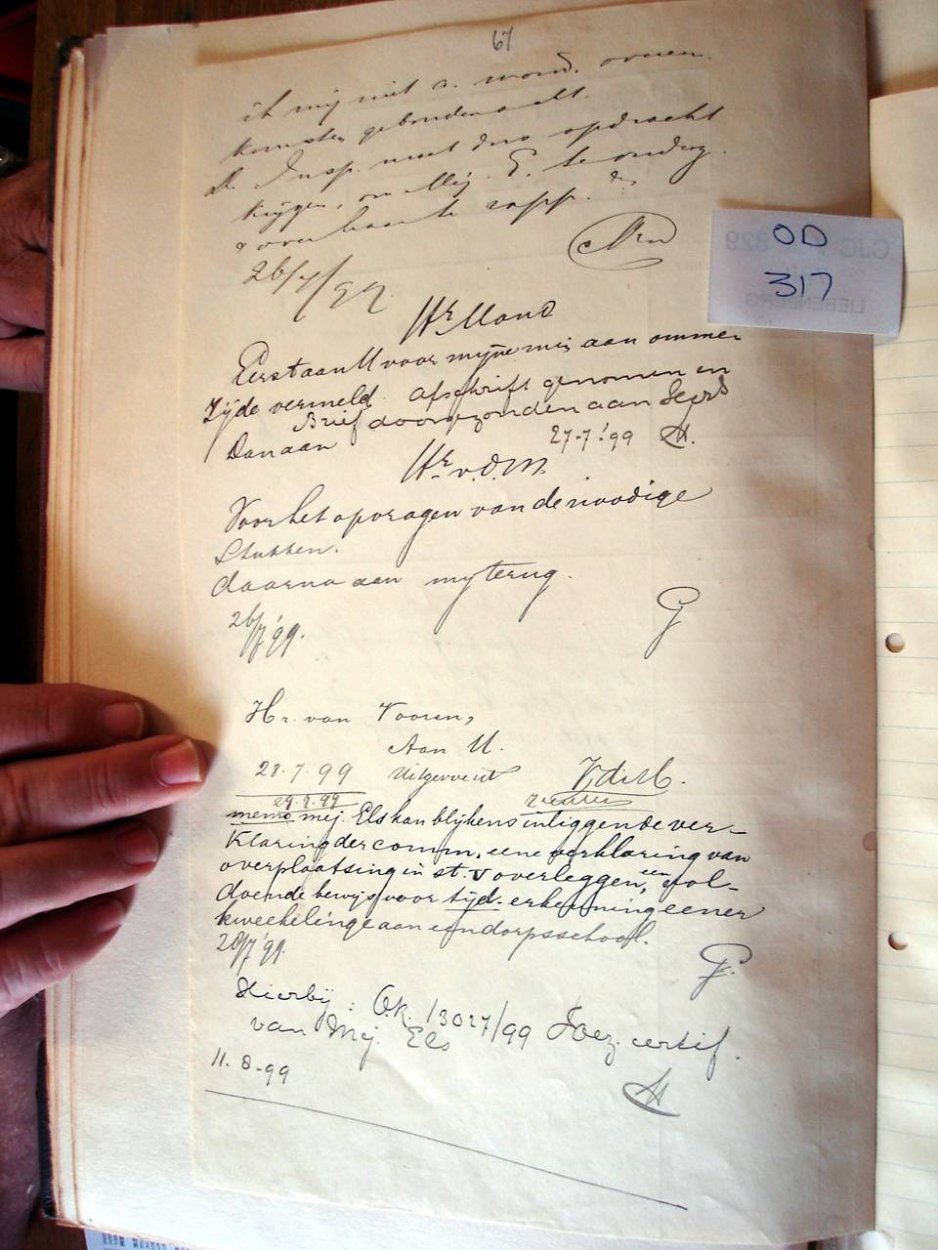 67
ik mij niet a. word. overeen
komsten gebonden acht.
d. Insp. moet dus opdracht
krijgen, om Mej. E. te onderz.
& over haar te rapp.
26/7/99
OD
317
Hr Mond
Eerst aan U voor mijne mij aan ommer
Zijde vermeld. Afschrift genomen en
Brief doorgezonden aan
Dan aan
27-7-'99 H.
Hr v.d.M.
Voor het opvragen van de noodige
Stukken.
daarna aan my terug.
26/7 '99.
G
Hr. van Vooren,
Aan U.
28.7.99 Uitgevoerd V.d.M.
29.7.99
memo mej. Els kan blijkens inliggende ver-
klaring der comm. eene verklaring van
overplaatsing in st. V overleggen, een vol-
doende bewijs voor tijd. erkenning eener
kweekelinge aan een dorpsschool.
28/7 '99.
G.
Hierbij: G.R. 13027/99 Toez. certif.
van Mej. Els
11-8-99
H